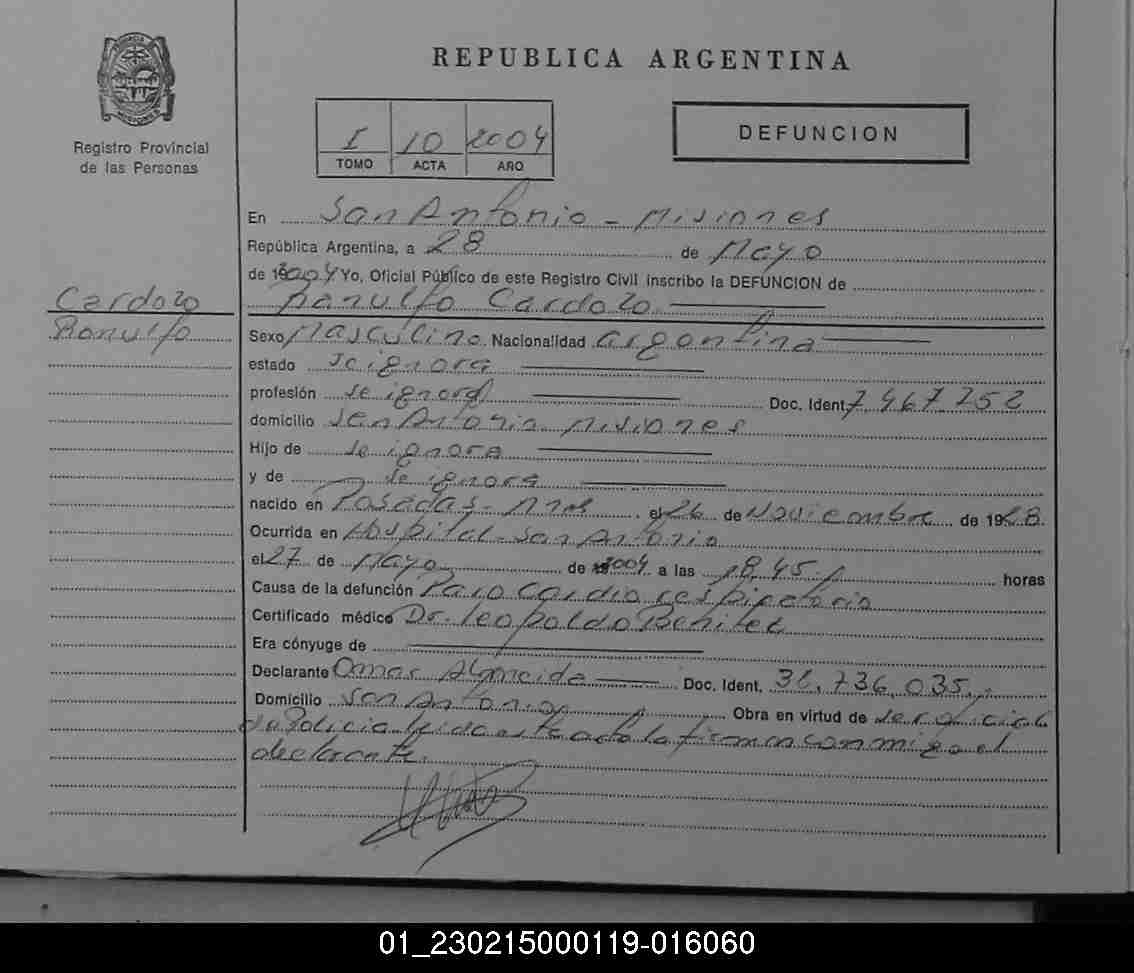 REPUBLICA ARGENTINA
PROVINCIA DE MISIONES
Registro Provincial
de las Personas
I 10 2004
TOMO ACTA AÑO
DEFUNCION
En San Antonio - Misiones
República Argentina, a 28 de Mayo
de 2004 Yo, Oficial Público de este Registro Civil inscribo la DEFUNCION de
Cardozo
Ranulfo
Ranulfo Cardozo
Sexo Masculino Nacionalidad argentina
estado se ignora
profesión se ignora Doc. Ident. 7467252
domicilio San Antonio Misiones
Hijo de se ignora
y de se ignora
nacido en Posadas - Mnes. el 26 de Noviembre de 1928.
Ocurrida en Hospital San Antonio
el 27 de Mayo de 2004 a las 18,45 horas
Causa de la defunción Paro Cardio respiratorio
Certificado médico Dr. Leopoldo Benitez
Era cónyuge de
Declarante Omar Almeida Doc. Ident. 32.736.035.
Domicilio San Antonio Obra en virtud de ser oficial
de Policia leida esta acta la firman conmigo el
declarante.
01_230215000119-016060